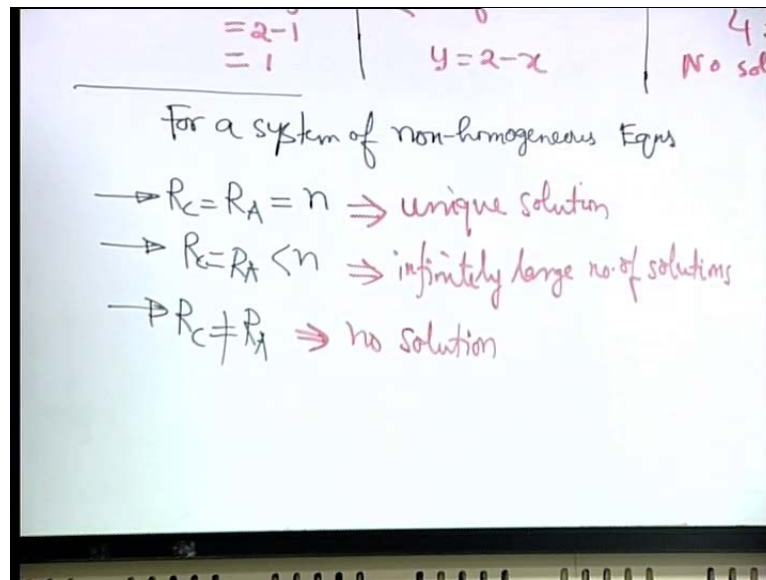 =2-1
=1
y=2-x
4
No sol
For a system of non-homogeneous Eqns
→ R_C = R_A = n ⇒ unique solution
→ R_C = R_A < n ⇒ infinitely large no. of solutions
→ R_C ≠ R_A ⇒ no solution